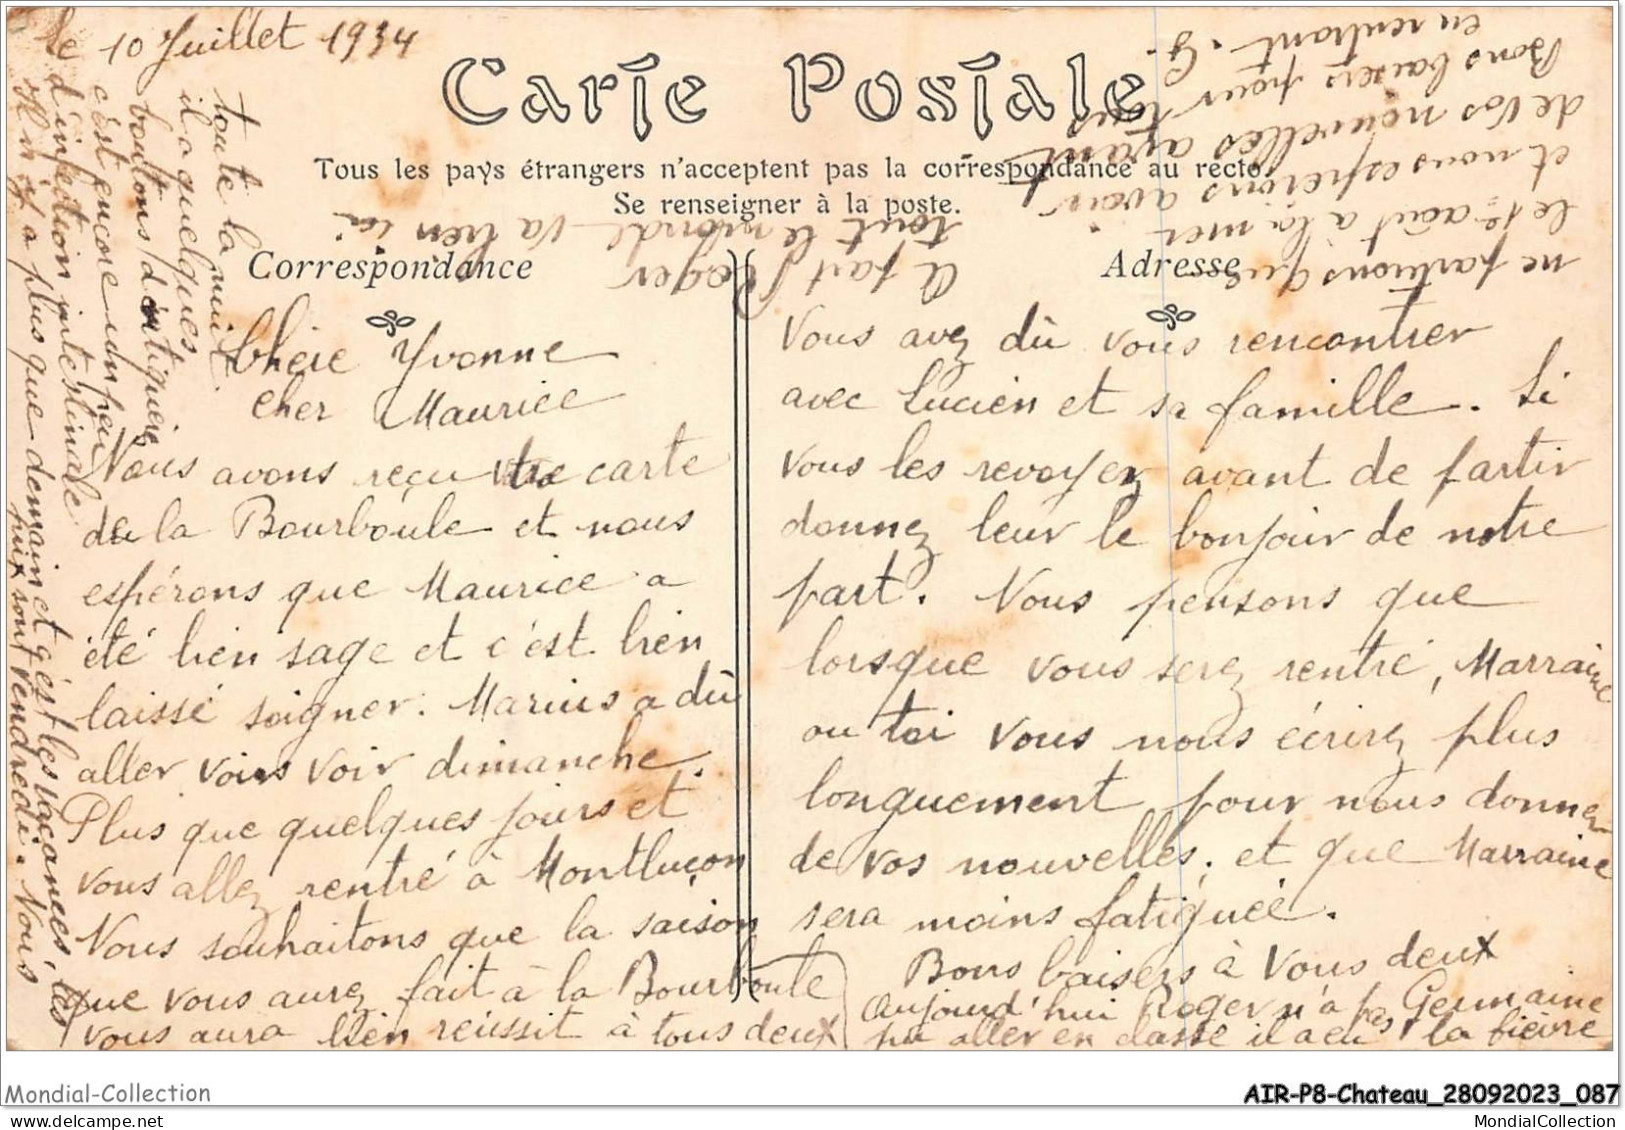 le 10 Juillet 1934
Carte Postale
Tous les pays étrangers n'acceptent pas la correspondance au recto.
Se renseigner à la poste.
Correspondance
Adresse
Chère Yvonne
cher Maurice
Nous avons reçu vtre carte
de la Bourboule et nous
espérons que Maurice a
été bien sage et c'est bien
laissé soigner. Marius a dû
aller vous voir dimanche.
Plus que quelques jours et
vous allez rentré à Montluçon
Nous souhaitons que la saison
que vous aurez fait à la Bourboule
vous aura bien réussit à tous deux
Vous avez dû vous rencontrer
avec Lucien et sa famille. Si
vous les revoyez avant de partir
donnez leur le bonjour de notre
part. Nous pensons que
lorsque vous serez rentré, Marraine
ou toi vous nous écrirez plus
longuement pour nous donner
de vos nouvelles. et que Marraine
sera moins fatiguée.
Bons baisers à vous deux
Germaine
Aujourd'hui Roger n'a pas
pu aller en classe il a eu la fièvre
toute la nuit
il a quelques
boutons d'urticaires
c'est encore un peu
d'infection intestinale
Il n'y a plus que demain et c'est les vacances, les
prix sont vendredi. Nous
ne partirons que
le 1er août à la mer
et nous espérons avoir
de vos nouvelles avant
Bons baisers pour tous
en rentrant. G.
A part Roger
tout le monde va bien ici
Mondial-Collection
AIR-P8-Chateau_28092023_087
MondialCollection